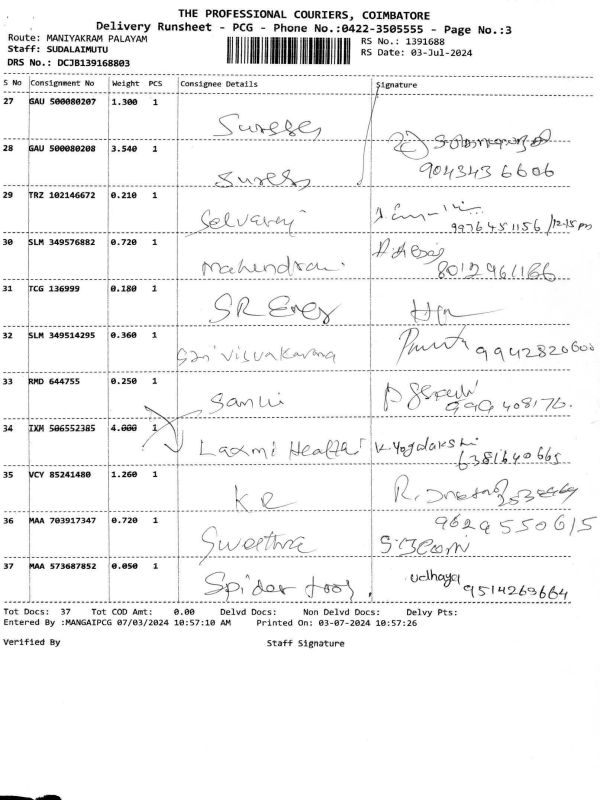 THE PROFESSIONAL COURIERS, COIMBATORE
Delivery Runsheet - PCG - Phone No.:0422-3505555 - Page No.:3
Route: MANIYAKRAM PALAYAM
RS No.: 1391688
Staff: SUDALAIMUTU
RS Date: 03-Jul-2024
DRS No.: DCJB139168803
S No Consignment No Weight PCS Consignee Details Signature
27 GAU 500080207 1.300 1 Suresh
28 GAU 500080208 3.540 1 Suresh 9043436606
29 TRZ 102146672 0.210 1 Selvaraj
9976451156 /12.15 pm
30 SLM 349576882 0.720 1 Mahendran
8012961166
31 TCG 136999 0.180 1 SR Energy
32 SLM 349514295 0.360 1 Sri Visvakarma 9942820600
33 RMD 644755 0.250 1
34 IXM 506552385 4.000 1 Laxmi Health K.Yogalakshi
6381640665
35 VCY 85241480 1.260 1 K R R.
36 MAA 703917347 0.720 1 Swethra 9629550615
37 MAA 573687852 0.050 1 Spider udhaya
9514269664
Tot Docs: 37 Tot COD Amt: 0.00 Delvd Docs: Non Delvd Docs: Delvy Pts:
Entered By :MANGAIPCG 07/03/2024 10:57:10 AM Printed On: 03-07-2024 10:57:26
Verified By Staff Signature